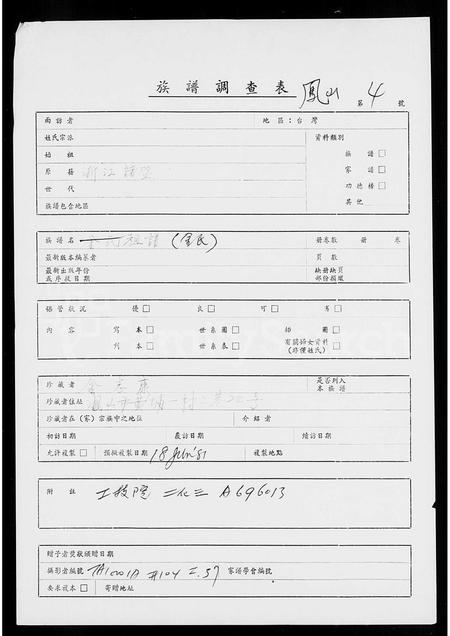 族譜調查表 鳳山 第 4 號
面訪者 地區:台灣
姓氏宗派 資料類別
始祖 族譜□
原籍 浙江諸暨 家譜□
世代 功德榜□
族譜包含地區 其他
族譜名 (金氏) 冊卷數 冊 卷
最新版本編纂者 頁數
最新出版年份 缺冊缺頁
或序狀日期 部份損壞
保管狀況 優□ 良□ 可□ 劣□
內容 寫本□ 世系圖□ 插圖□
刊本□ 世系表□ 有關婦女資料□
(非僅姓氏)
珍藏者 金 是否列入
本族譜
珍藏者住址 鳳山市 一村二巷22号
珍藏者在(家)宗族中之地位 介紹者
初訪日期 覆訪日期 續訪日期
允許複製□ 預擬複製日期 18 Jun '81 複製地點
附註 A696013
贈予者受款領贈日期
攝影者編號 #104 家譜學會編號
要求複本□ 寄贈地址